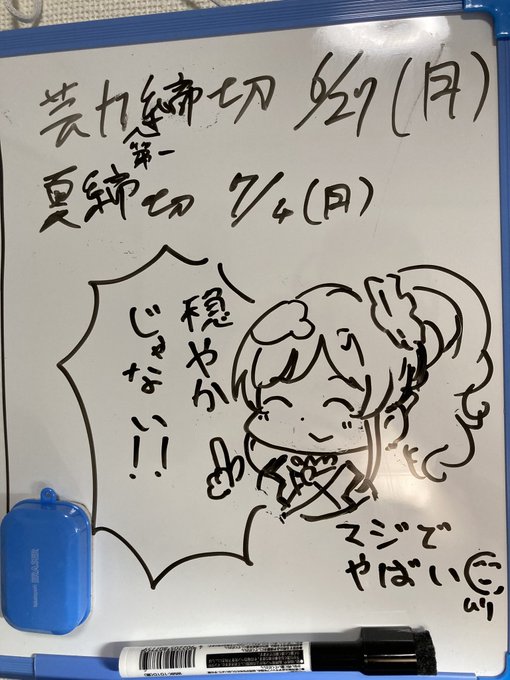 芸カ締切 6/27(月)
第一
夏締切 7/4(月)
穏やか
じゃない!!
マジで
やばい
ムリ
ERASER